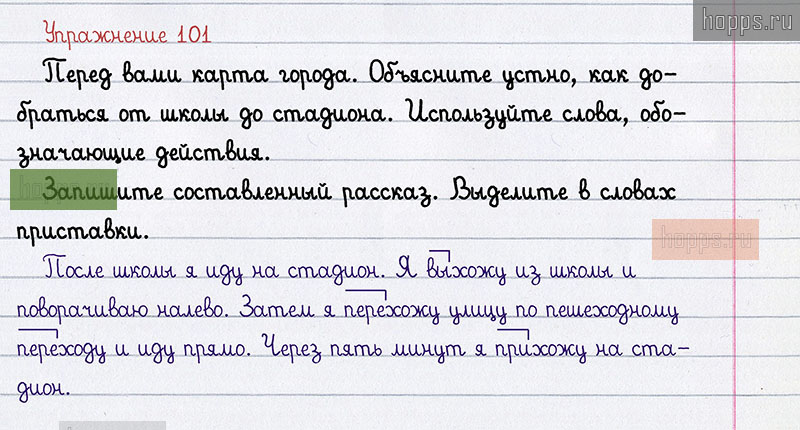 hopps.ru
Упражнение 101
Перед вами карта города. Объясните устно, как до-
браться от школы до стадиона. Используйте слова, обо-
значающие действия.
Запишите составленный рассказ. Выделите в словах
приставки.
hopps.ru
После школы я иду на стадион. Я выхожу из школы и
поворачиваю налево. Затем я перехожу улицу по пешеходному
переходу и иду прямо. Через пять минут я прихожу на ста-
дион.